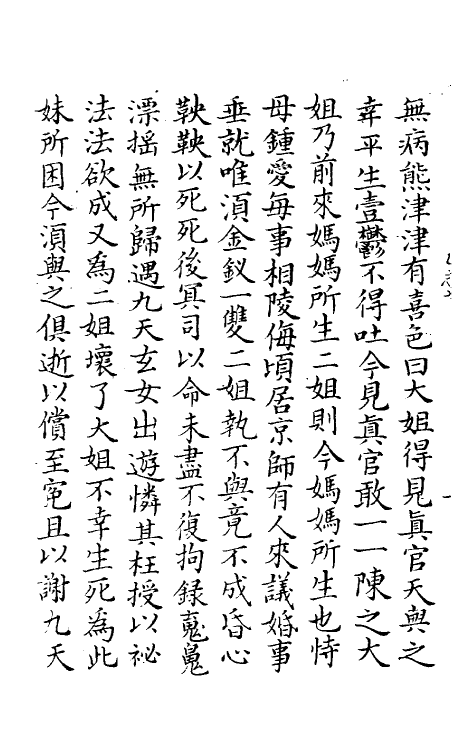 無病態津津有喜色曰大姐得見眞官天與之
幸平生壹鬱不得吐今見眞官敢一一陳之大
姐乃前來媽媽所生二姐則今媽媽所生也恃
母鍾愛每事相陵侮頃居京師有人來議婚事
垂就唯湏金釵一雙二姐執不與竟不成昏心
鞅鞅以死死後冥司以命未盡不復拘録䰟鬼
漂揺無所歸遇九天玄女出遊憐其枉授以祕
法法欲成又爲二姐壞了大姐不幸生死爲此
妹所困今湏與之俱逝以償至寃且以謝九天